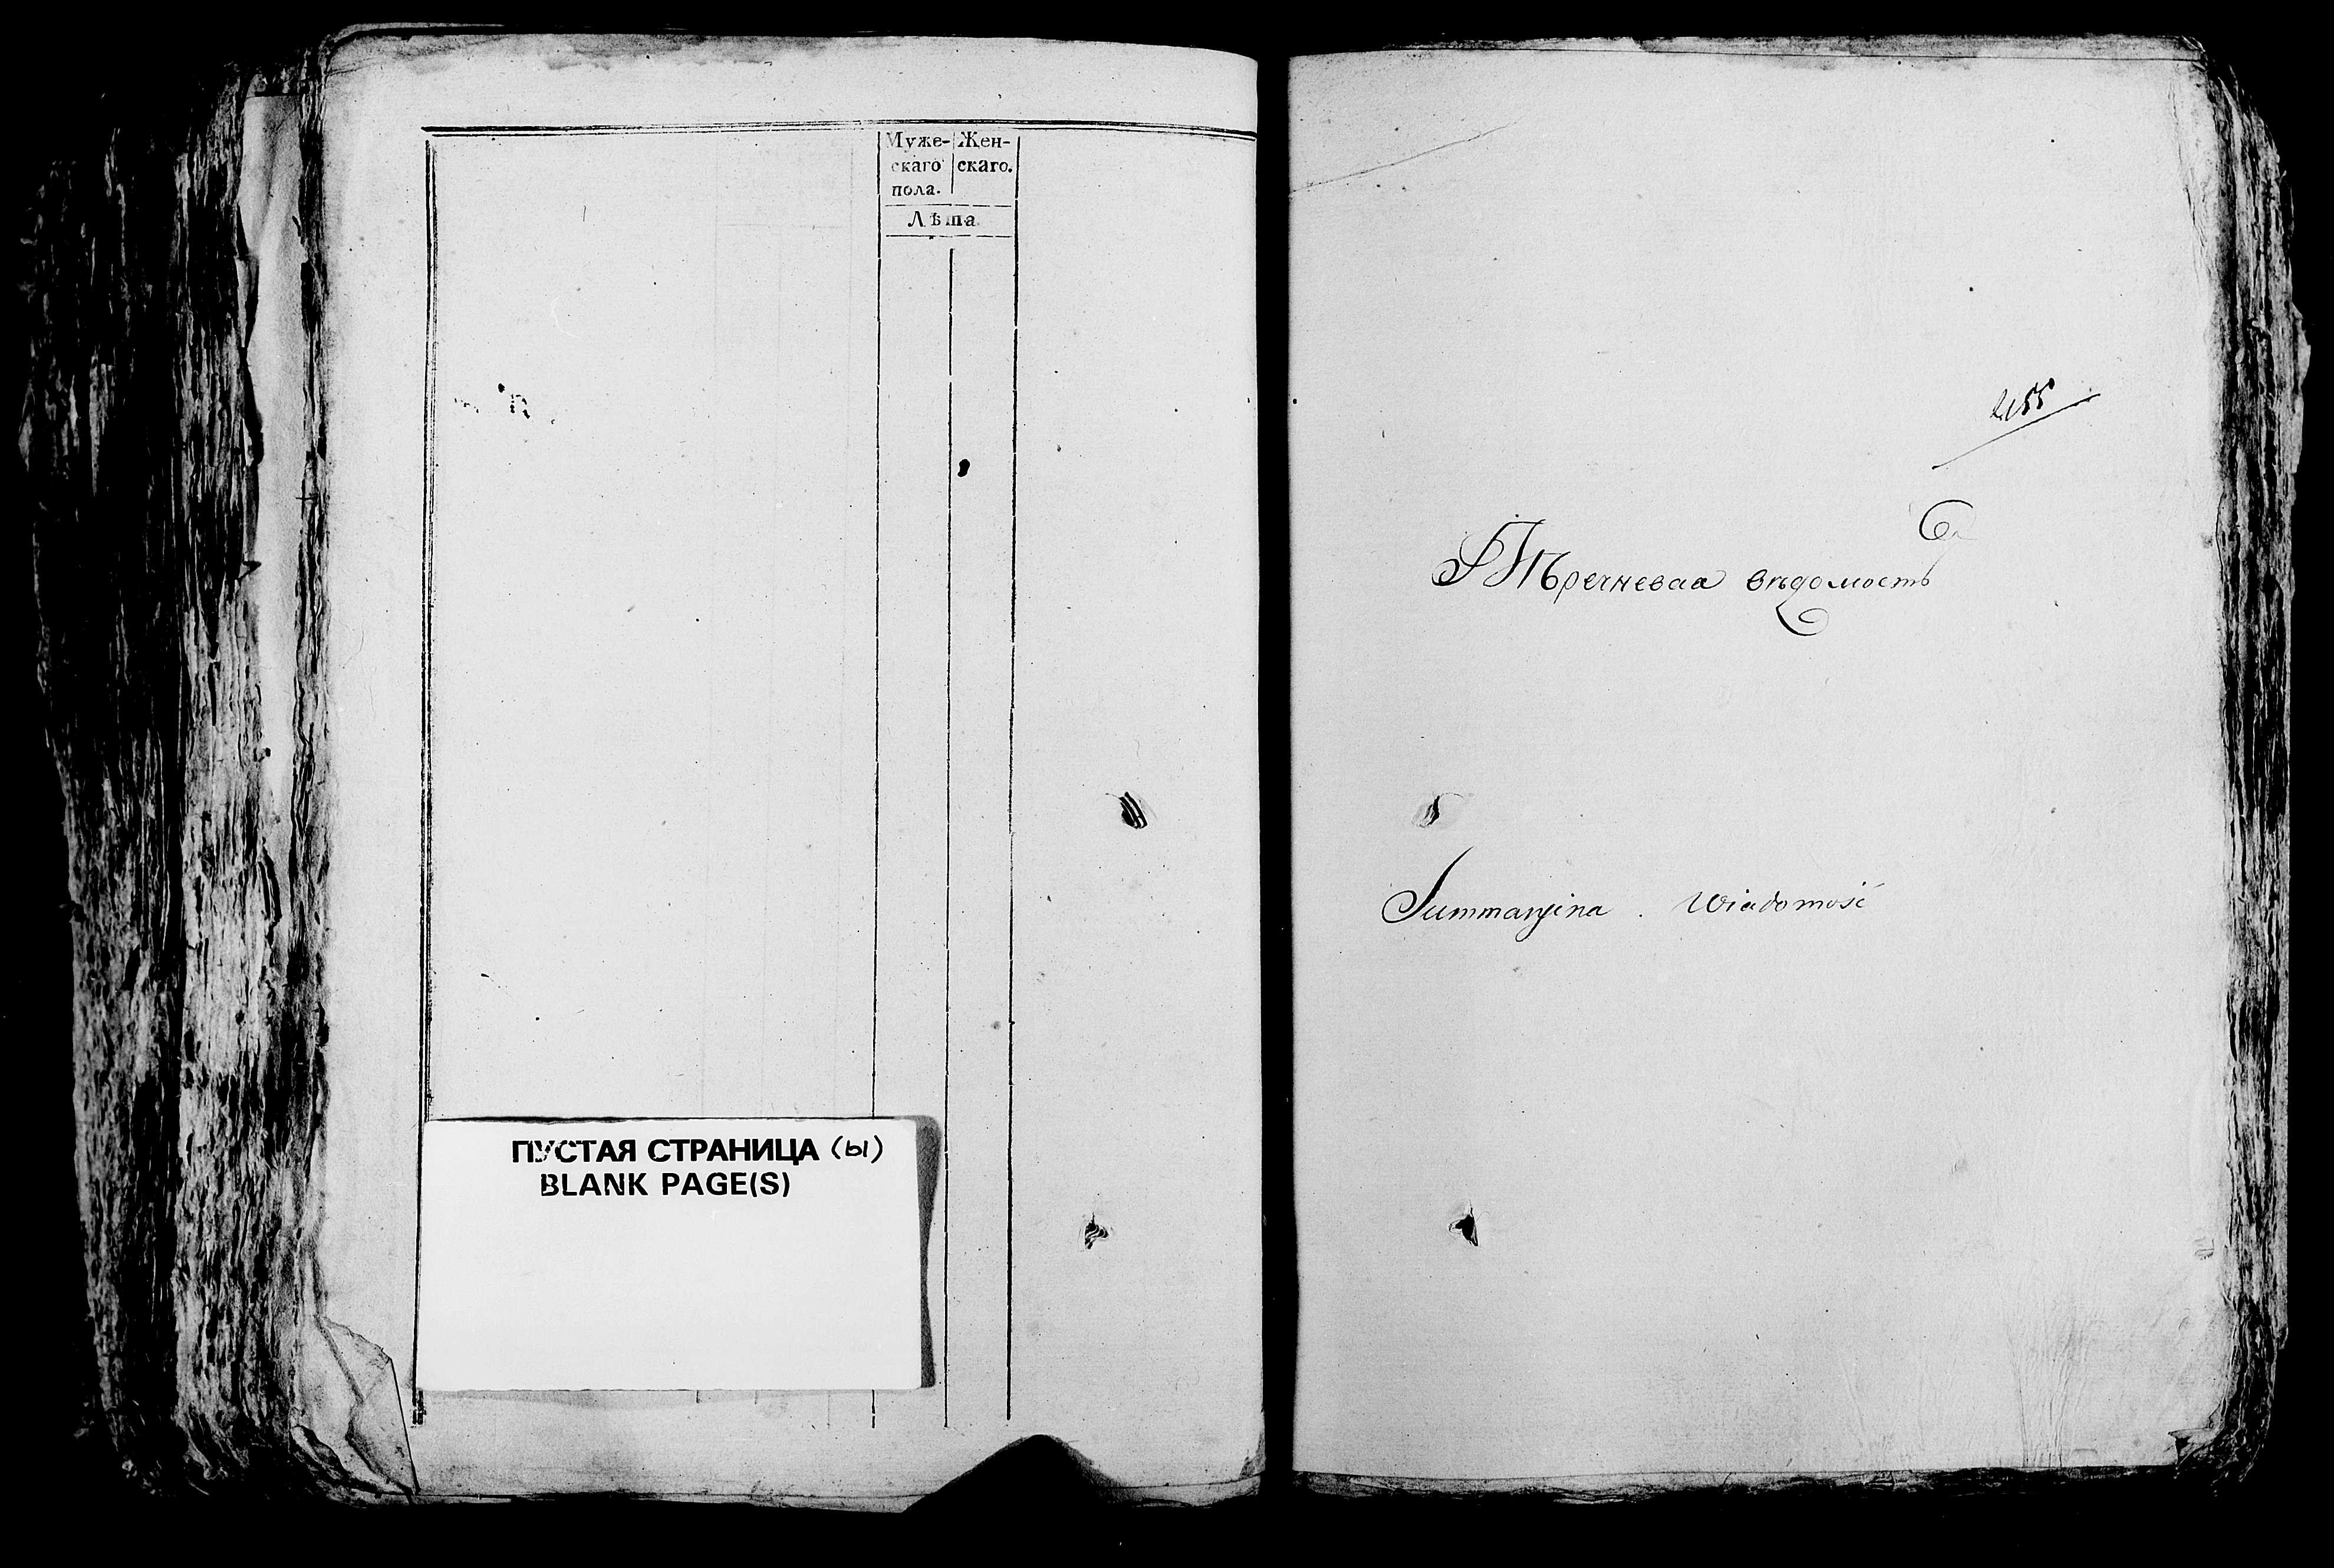 Муже- Жен-
скаго скаго.
пола.
Лѣта
ПУСТАЯ СТРАНИЦА (ы)
BLANK PAGE(S)
Перечневая вѣдомость
Summaryina Wiadomość